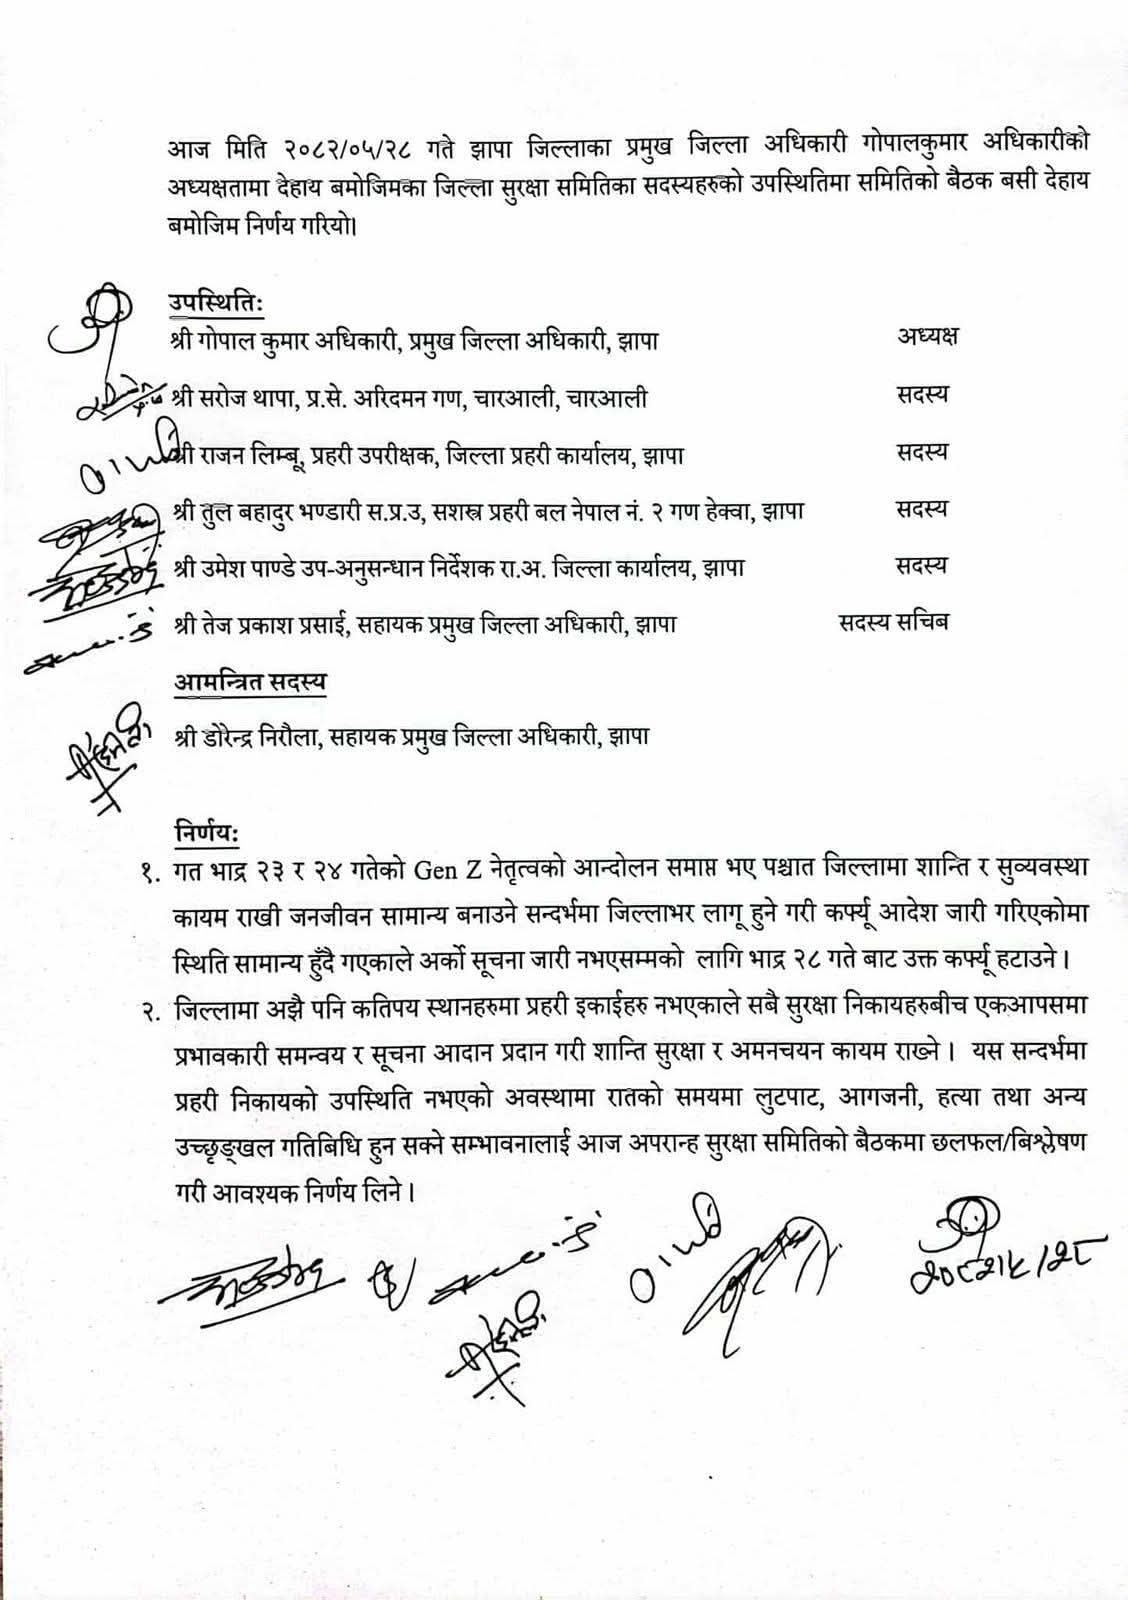 आज मिति २०८२/०५/२८ गते झापा जिल्लाका प्रमुख जिल्ला अधिकारी गोपालकुमार अधिकारीको
अध्यक्षतामा देहाय बमोजिमका जिल्ला सुरक्षा समितिका सदस्यहरुको उपस्थितिमा समितिको बैठक बसी देहाय
बमोजिम निर्णय गरियो।
उपस्थितिः
श्री गोपाल कुमार अधिकारी, प्रमुख जिल्ला अधिकारी, झापा अध्यक्ष
श्री सरोज थापा, प्र.से. अरिदमन गण, चारआली, चारआली सदस्य
श्री राजन लिम्बू, प्रहरी उपरीक्षक, जिल्ला प्रहरी कार्यालय, झापा सदस्य
श्री तुल बहादुर भण्डारी स.प्र.उ, सशस्त्र प्रहरी बल नेपाल नं. २ गण हेक्वा, झापा सदस्य
श्री उमेश पाण्डे उप-अनुसन्धान निर्देशक रा.अ. जिल्ला कार्यालय, झापा सदस्य
श्री तेज प्रकाश प्रसाई, सहायक प्रमुख जिल्ला अधिकारी, झापा सदस्य सचिब
आमन्त्रित सदस्य
श्री डोरेन्द्र निरौला, सहायक प्रमुख जिल्ला अधिकारी, झापा
निर्णय:
१. गत भाद्र २३ र २४ गतेको Gen Z नेतृत्वको आन्दोलन समाप्त भए पश्चात जिल्लामा शान्ति र सुव्यवस्था
कायम राखी जनजीवन सामान्य बनाउने सन्दर्भमा जिल्लाभर लागू हुने गरी कर्फ्यू आदेश जारी गरिएकोमा
स्थिति सामान्य हुँदै गएकाले अर्को सूचना जारी नभएसम्मको लागि भाद्र २८ गते बाट उक्त कर्फ्यू हटाउने ।
२. जिल्लामा अझै पनि कतिपय स्थानहरुमा प्रहरी इकाईहरु नभएकाले सबै सुरक्षा निकायहरुबीच एकआपसमा
प्रभावकारी समन्वय र सूचना आदान प्रदान गरी शान्ति सुरक्षा र अमनचयन कायम राख्ने । यस सन्दर्भमा
प्रहरी निकायको उपस्थिति नभएको अवस्थामा रातको समयमा लुटपाट, आगजनी, हत्या तथा अन्य
उच्छृङ्खल गतिबिधि हुन सक्ने सम्भावनालाई आज अपरान्ह सुरक्षा समितिको बैठकमा छलफल/बिश्लेषण
गरी आवश्यक निर्णय लिने ।
२०८२।५/२८